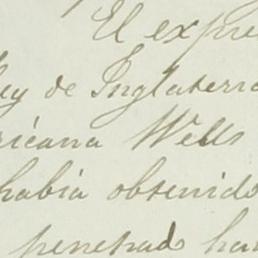 El expre
ley de Inglaterra
ricana Wells
habia obtenido
penetrado ha